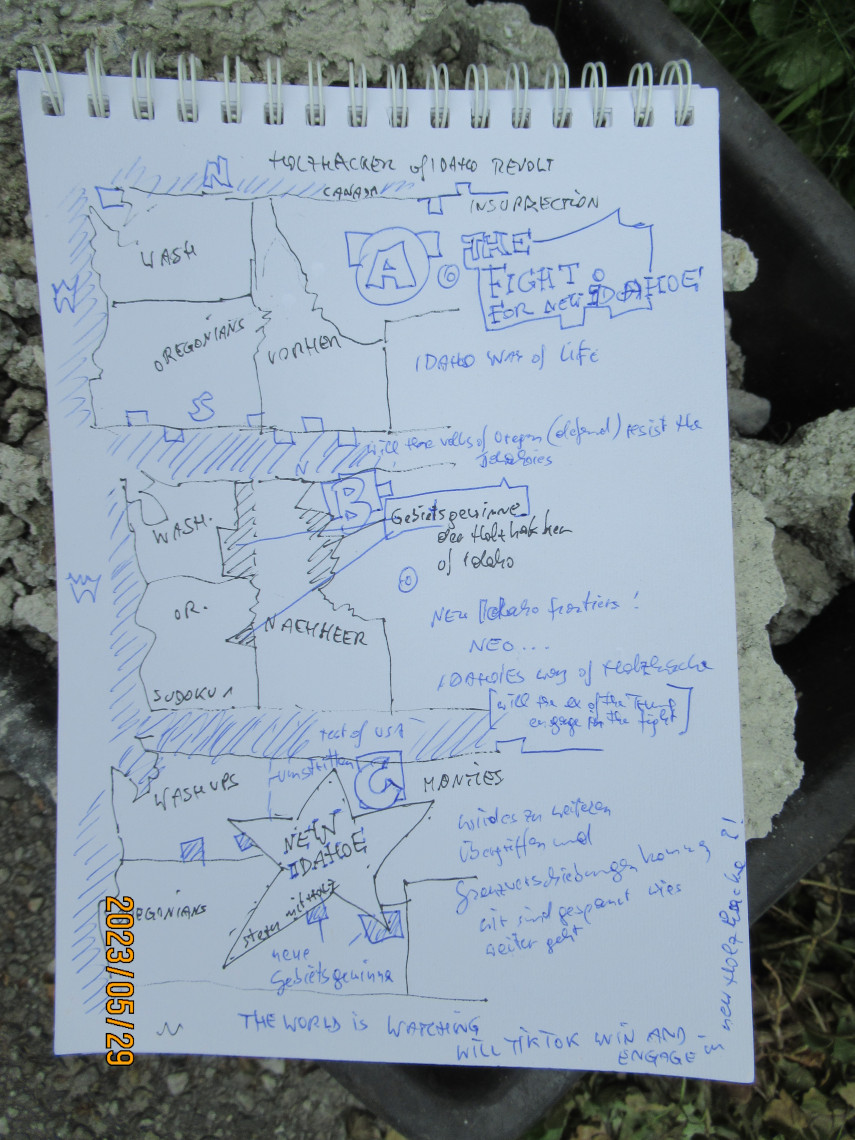 HOLZHACKER of IDAHO REVOLT
N
CANADA
INSURRECTION
WASH
A
THE
FIGHT
FOR NEW IDAHOE
W
OREGONIANS
VORHER
IDAHO WAY of LIFE
S
will the volks of Oregon (defend) resist the
Idahoies
N
B
WASH.
Gebietsgewinne
der Holzhacken
of Idaho
W
OR.
NEW Idaho frontiers!
NACHHEER
NEO...
IDAHOIES way of Holzhacke
SUDOKU
[will the ex of the Trump
engage for the fight]
rest of USA
umstritten
C
MONTIES
WASHUPS
NEW
IDAHOE
wird es zu weiteren
Übergriffen und
Grenzverschiebungen kommen
wir sind gespannt wies
weiter geht
EGONIANS
stern mit Holz
neue
Gebietsgewinne
N
THE WORLD IS WATCHING
WILL TIKTOK WIN AND
ENGAGE
new Holzhacke ?!
2023/05/29